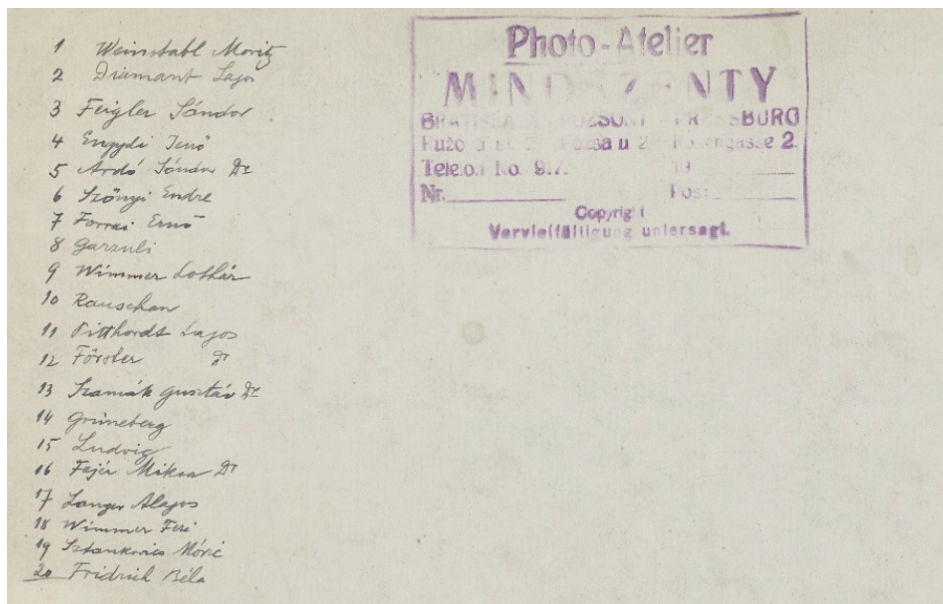 1 Weinstabl Moritz
2 Diamant Lajos
3 Feigler Sándor
4 Jenő
5 Ardó Sándor Dr
6 Szőnyi Endre
7 Forrai Ernő
8 Garzuli
9 Wimmer Lothár
10 Rauschan
11 Pitthordt Lajos
12 Förster Dr
13 Szamák Gusztáv Dr
14 Grüneberg
15 Ludvig
16 Fejér Miksa Dr
17 Langer Alajos
18 Wimmer Feri
19 Sztankovics Móric
20 Fridrich Béla
Photo-Atelier
MINDSZENTY
BRATISLAVA POZSONY PRESSBURG
2. u 2. Rosengasse 2.
Telefon No. 19
Nr. Pos:
Copyright
Vervielfältigung untersagt.